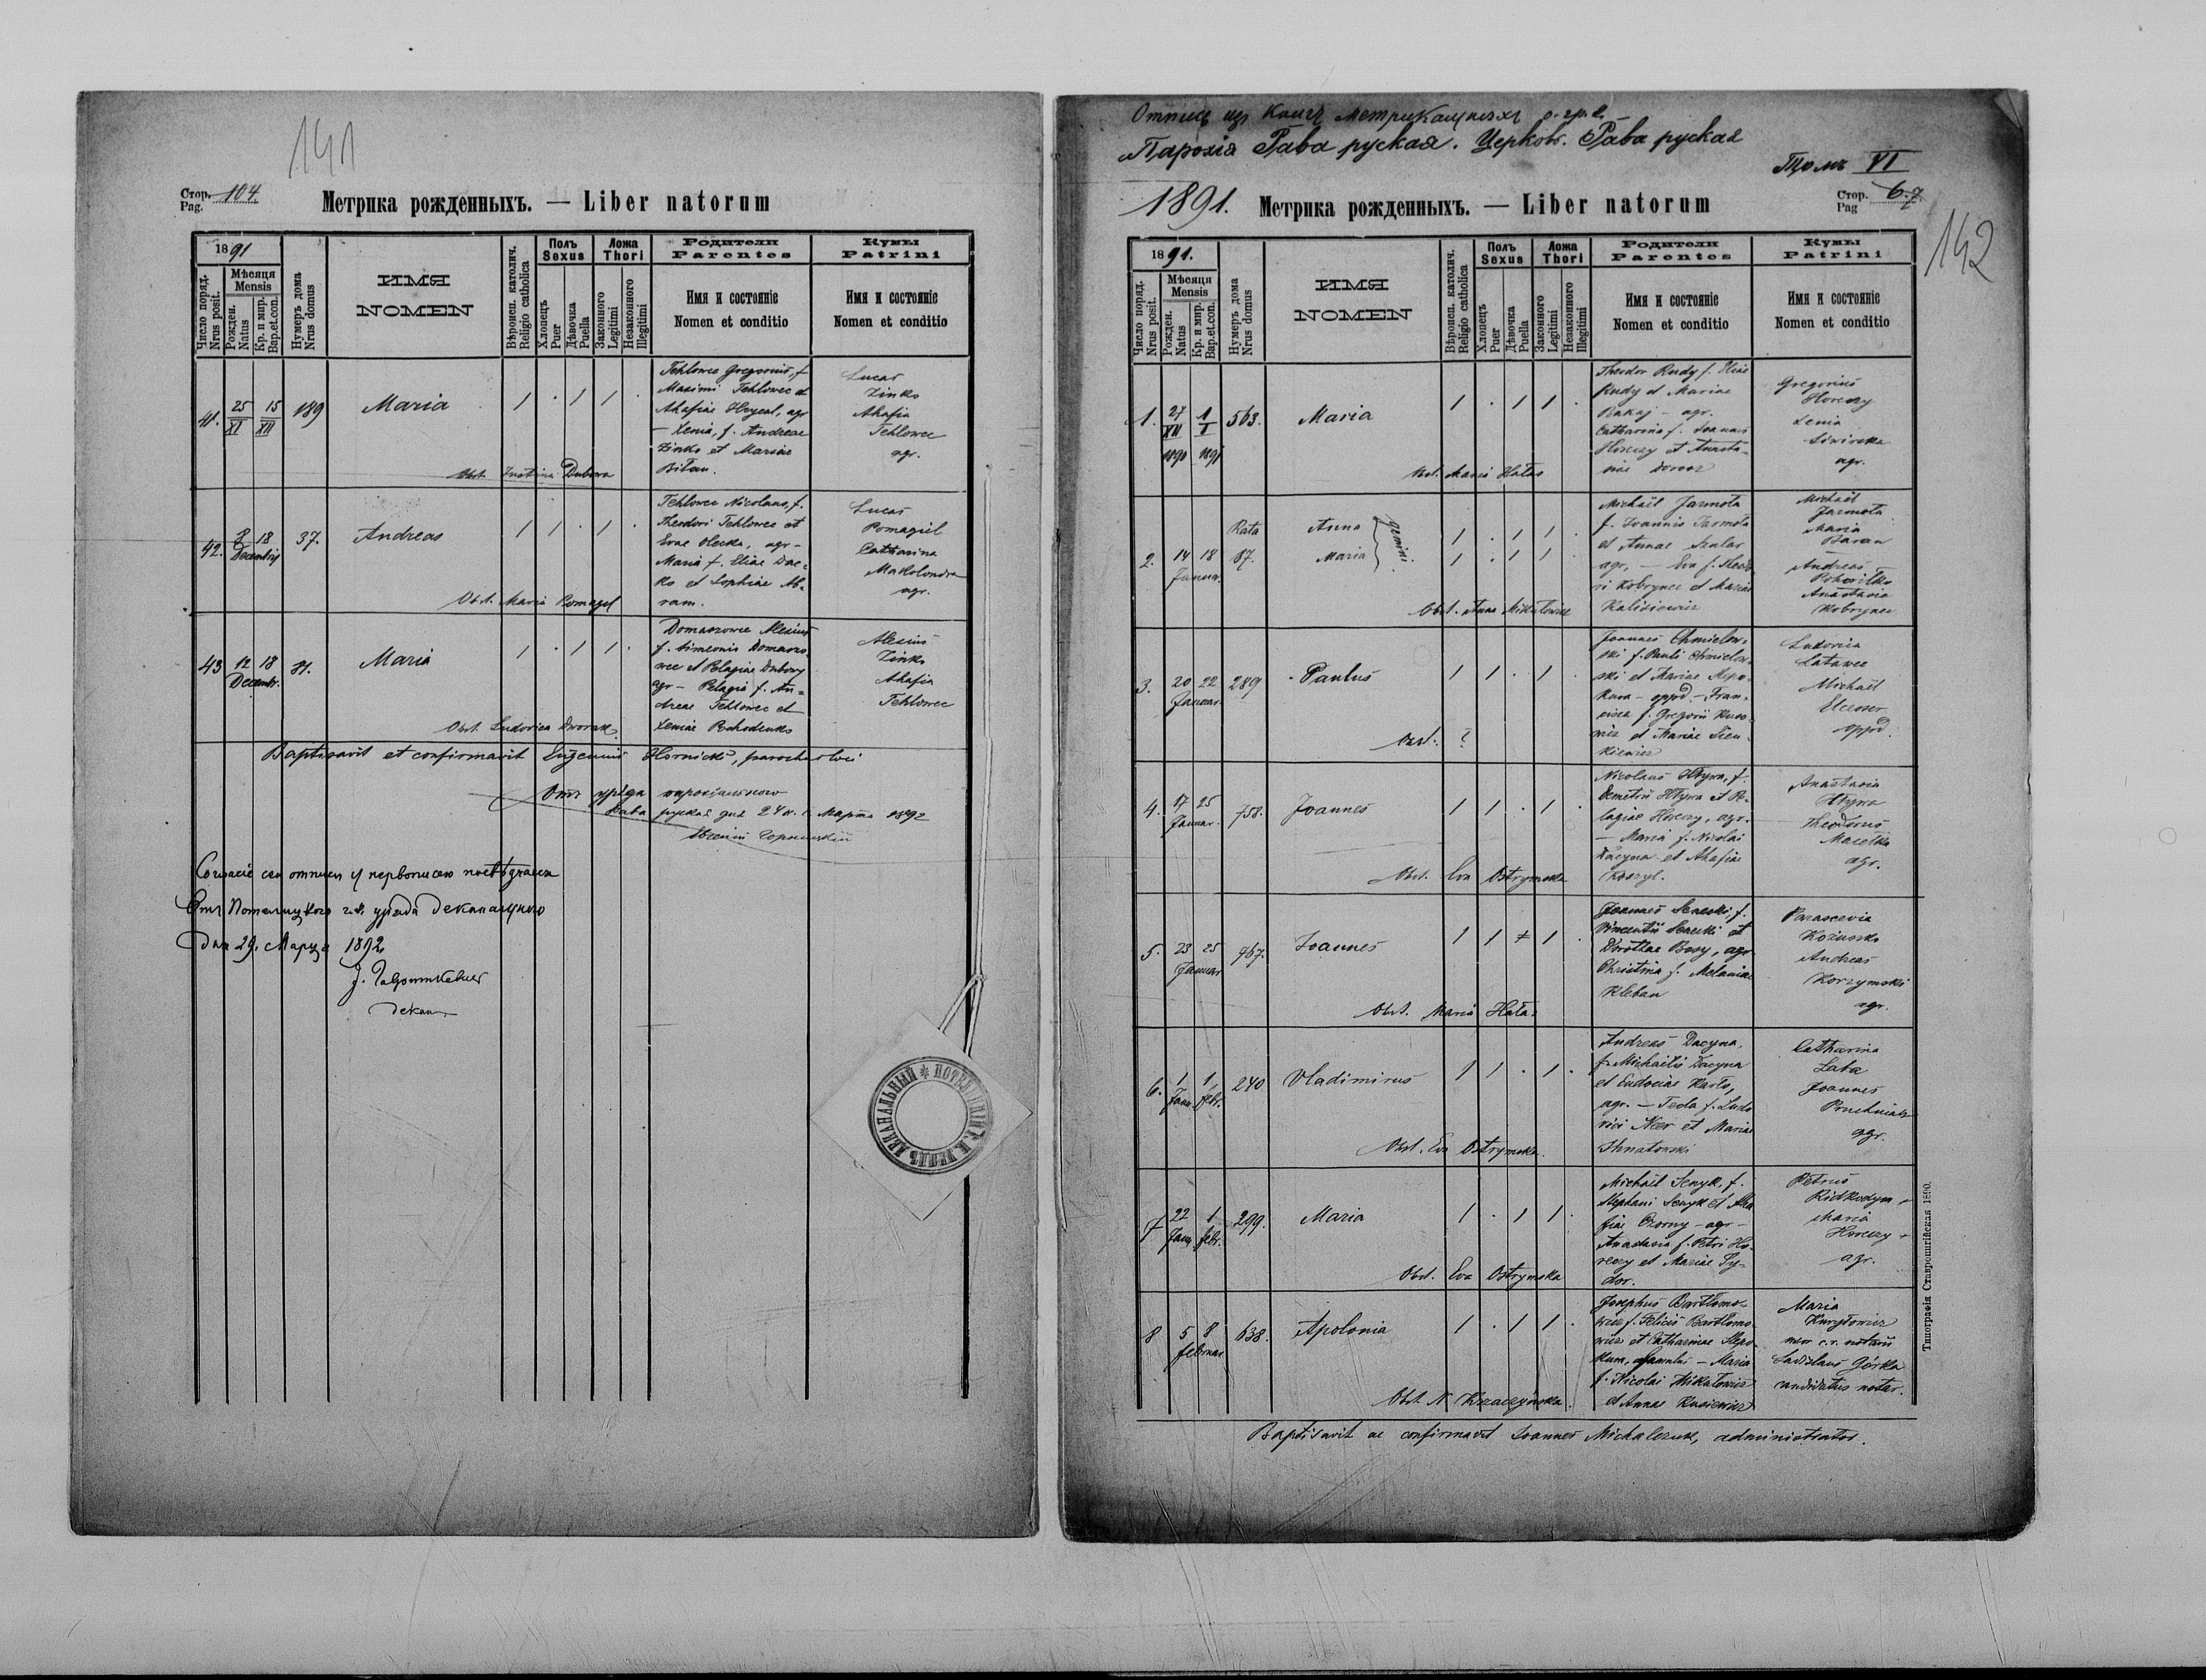 141
Стор. 104.
Pag.
Метрика рожденныхъ. — Liber natorum
1891
Число поряд.
Nrus posit.
Мѣсяця
Mensis
Рожден.
Natus
Кр. и мир.
Bap.et.con.
Нумеръ дома
Nrus domus
ИМЯ
NOMEN
Вѣроисп. католич.
Religio catholica
Полъ
Sexus
Хлопецъ
Puer
Дѣвочка
Puella
Ложа
Thori
Законного
Legitimi
Незаконного
Illegitimi
Родители
Parentes
Имя и состояніе
Nomen et conditio
Кумы
Patrini
Имя и состояніе
Nomen et conditio
41. 25 XI 15 XII 189 Maria
Tehlowec Gregorius, f.
Maximi Tehlowec et
Ahafiae agr
— Xenia, f. Andreae
Zinko et Mariae
Bilan.
Lucas
Zinko
Ahafia
Tehlowec
agr.
Obst. Justina Dubowa
42. 8 18 Decembris 37. Andreas
Tehlowec Nicolaus, f.
Theodori Tehlowec et
Evae Hecka, agr-
Maria f. Eliae Dac=
ko et Sophiae Ab-
ram.
Lucas
Pomagiel
Catharina
Makolondra
agr.
Obst. Maria Pomagel
43 12 18 Decembr. 81. Maria
Domaszowec Alexius
f. Simeonis Domaszo-
wec et Pelagiae Dubowy
agr — Pelagia f. An=
dreae Tehlowec et
Xeniae Bohodenko
Alexius
Zinko
Ahafia
Tehlowec
Obst. Ludovica Dworak.
Baptisavit et confirmavit Eugenius Hornicki, parochus loci
Отъ уряда парохіяльного
Рава руская дня 24 н. с. Марта 1892
Евгеній Горницкій
Согласіе сеи отписи съ первописею
Отъ Потелицкого г.к. уряда деканального
Дня 29. Марца 1892
декан
Отпись изъ Книгъ метрикальныхъ
Парохія Рава руская. Церковъ. Рава руская
Томъ VI
1891. Метрика рожденныхъ. — Liber natorum
Стор. 6.7
Pag
142
1891.
Число поряд.
Nrus posit.
Мѣсяця
Mensis
Рожден.
Natus
Кр. и мир.
Bap.et.con.
Нумеръ дома
Nrus domus
ИМЯ
NOMEN
Вѣроисп. католич.
Religio catholica
Полъ
Sexus
Хлопецъ
Puer
Дѣвочка
Puella
Ложа
Thori
Законного
Legitimi
Незаконного
Illegitimi
Родители
Parentes
Имя и состояніе
Nomen et conditio
Кумы
Patrini
Имя и состояніе
Nomen et conditio
1. 27 XII 1890 1 I 1891 563. Maria
Theodor Rudy f. Eliae
Rudy et Mariae
Bakaj — agr.
Catharina f. Joannis
Horeczy et Anasta-
siae
Gregorius
Horeczy
Xenia
agr.
Obst. Maria Hałas
2. 14 18 Januar. Rata 87. Anna Maria gemini.
Michaël Jarmota
f. Joannis Jarmota
et Annae Szular
agr, — Eva f. Theodo
ri Kobryner et Mariae
Kalisiewicz
Michaël
Jarmota
Maria
Baran
Andreas
Pohoriłko
Anastasia
Kobryner
Obst. Anna Mikulowicz
3. 20 22 Januar. 289 Paulus
Joannes Chmielow-
ski f. Pauli Chmielow-
ski et Mariae Slepo-
kura — oppd. — Fran-
cisca f. Gregorii Kuro-
wicz et Mariae Sien-
kiewicz
Ludovica
Latawec
Michaël
oppd.
Obst. ?
4. 17 25 Januar. 758. Joannes
Nicolaus Hływa, f.
Demetrii Hływa et Pe-
lagiae Horeczy, agr.
— Maria f. Nicolai
Dacyna et Ahafiae
Anastasia
Hływa
Theodorus
Macełko
agr.
Obst. Eva Ostrymska
5. 23 25 Januar 967. Joannes
Joannes Senecki, f.
Vincentii Senecki et
Dorotheae Bosy, agr
Christina f. Melaniae
Kleban
Parascevia
Kożuszko
Andreas
Korzymski
agr.
Obst. Maria Hałas
6. 1 Jan. 1 febr. 240 Vladimirus
Andreas Dacyna,
f. Michailis Dacyna
et Eudociae Karlo,
agr. — Tecla f. Ludo
vici Neer et Mariae
Ihnatowski
Catharina
Łaba
Joannes
Pruchniak
agr.
Obst. Eva Ostrymska.
7 22 Jan. 1 febr. 299. Maria
Michaël Senyk, f.
Stephani Senyk et Aha
fiae Czorny — agr —
Anastasia f. Petri Ho-
reczy et Mariae Sy-
dor.
Petrus
Kidkodym
Maria
Horeczy
agr.
Obst. Eva Ostrymska
8 5 8 februar. 638. Apolonia
Josephus Bartłomo-
wicz f. Felicis Bartłomo
wicz et Catharinae Slepo-
kura, famulus — Maria
f. Nicolai Mikałowicz
et Annae Kusiewicz
Maria
Kuryłowicz
uxor c.r. notarii
Ladislaus Górka
candidatus notar.
Obst. N.
Baptisavit ac confirmavit Joannes Michalczuk, administrator.
Типографія Ставропигійская 1890.